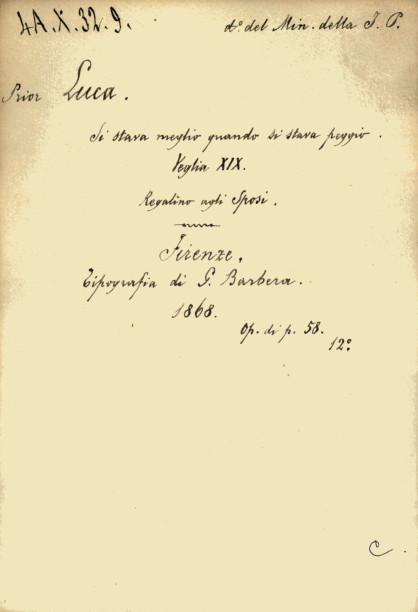 4A.X.32.9.
d.º del Min. della I. P.
Prior Luca.
Si stava meglio quando si stava peggio.
Veglia XIX.
Regalino agli Sposi.
Firenze,
Tipografia di G. Barbera.
1868.
Op. di p. 58.
12º
C.